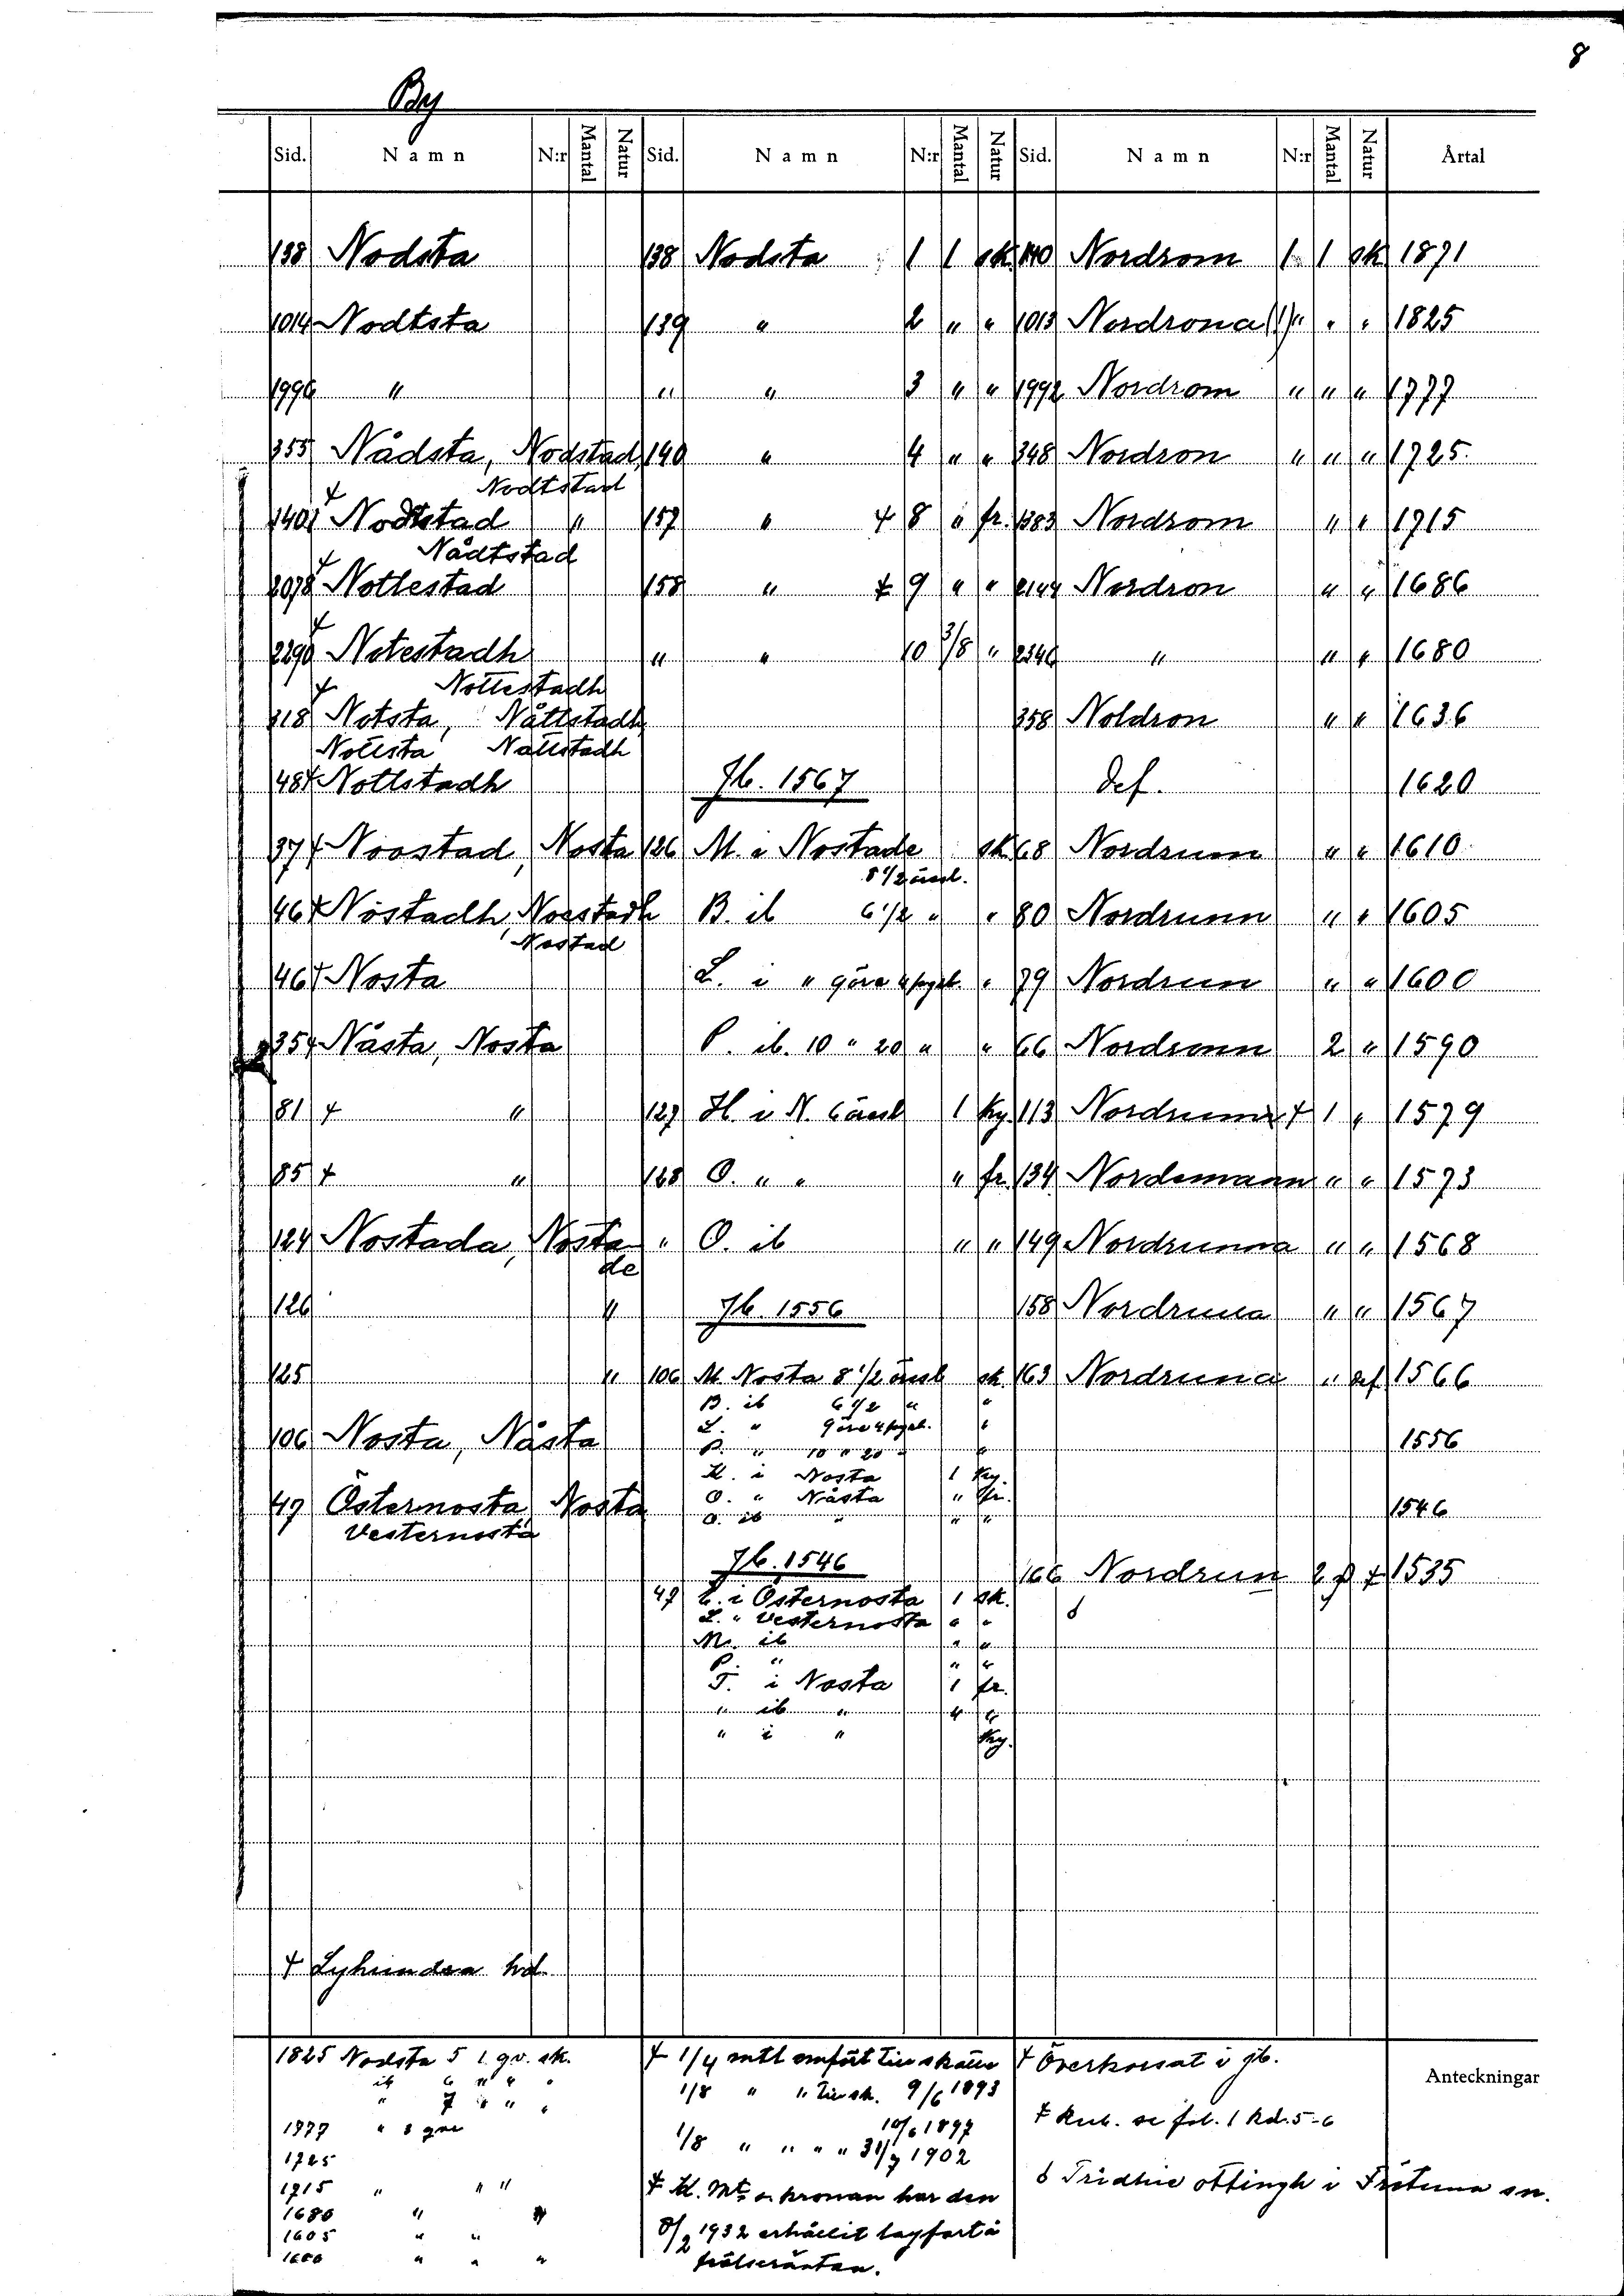 8
By
Sid. Namn N:r Mantal Natur Sid. Namn N:r Mantal Natur Sid. Namn N:r Mantal Natur Årtal
138 Nodsta 138 Nodsta 1 1 sk. 140 Nordrom 1 1 sk 1871
1014 Nodtsta 139 " 2 " " 1013 Nordrona (!) " " " 1825
1996 " " " 3 " " 1992 Nordrom " " " 1777
355 Nådsta, Nodstad 140 " 4 " " 348 Nordron " " " 1725
Nodtstad
1401 Nodtstad " 157 " + 8 " fr. 1383 Nordrom " " 1715
Nådtstad
2078 Nottestad 158 " ‡ 9 " " 2144 Nordron " " 1686
2290 Notestadh " " 10 3/8 " 2346 " " " 1680
Nottestadh
318 Notsta, Nåttstadh 358 Noldron " " 1636
Nottsta Nattstadh
48 + Nottstadh Jb. 1567 def. 1620
37 + Noostad, Nosta 126 M. i Nostade sk 68 Nordrum " " 1610
8 1/2 ÿresl.
46 + Nöstadh, Noestadh B. ib 6 1/2 " " 80 Nordrunn " " 1605
Nostad
46 + Nosta L. i " " 79 Nordrun " " 1600
354 Nåsta, Nosta P. ib. 10 " 20 " " 66 Nordronn 2 " 1590
81 + " 127 H. i N. 1 Ky. 113 Nordruma + 1 " 1579
85 + " 128 O. " " " fr. 134 Nordemann " " 1573
124 Nostada, Nosta " O. ib " " 149 Nordrunna " " 1568
de
126 " Jb. 1556 158 Nordruna " " 1567
125 " 106 M. Nosta 8 1/2 sk. 163 Nordruna " def 1566
B. ib 6 1/2 " "
L. " "
106 Nosta, Nåsta P. " 10 " 20 " " 1556
H. i Nosta 1 Ky.
O. " Nåsta " fr.
47 Östernosta, Nosta O. ib " " " 1546
Vesternosta
Jb. 1546 166 Nordrun 2 1535
47 L. i Östernosta 1 sk.
L. " Vesternosta " "
M. ib " "
P. " " "
T. i Nosta 1 fr.
" ib " " "
" i " Ky.
+ Lyhundra hd.
1825 Nodsta 5 1 qv. sk.
ib 6 " " "
" 7 " " "
1777 " 8
1725
1715 " " "
1686 " "
1605 " "
1600 " " "
+ 1/4 mtl omfört till skatte
1/8 " " till sk. 9/6 1893
10/6 1897
1/8 " " " " 31/7 1902
‡ Kl. Mt. o. kronan har den
8/2 1932 erhållit lagfart å
frälseräntan.
+ Överkorsat i jb.
‡ Rub. se fol. 1 Rd. 5-6
Tridhie ottingh i Frötuna sn.
Anteckningar